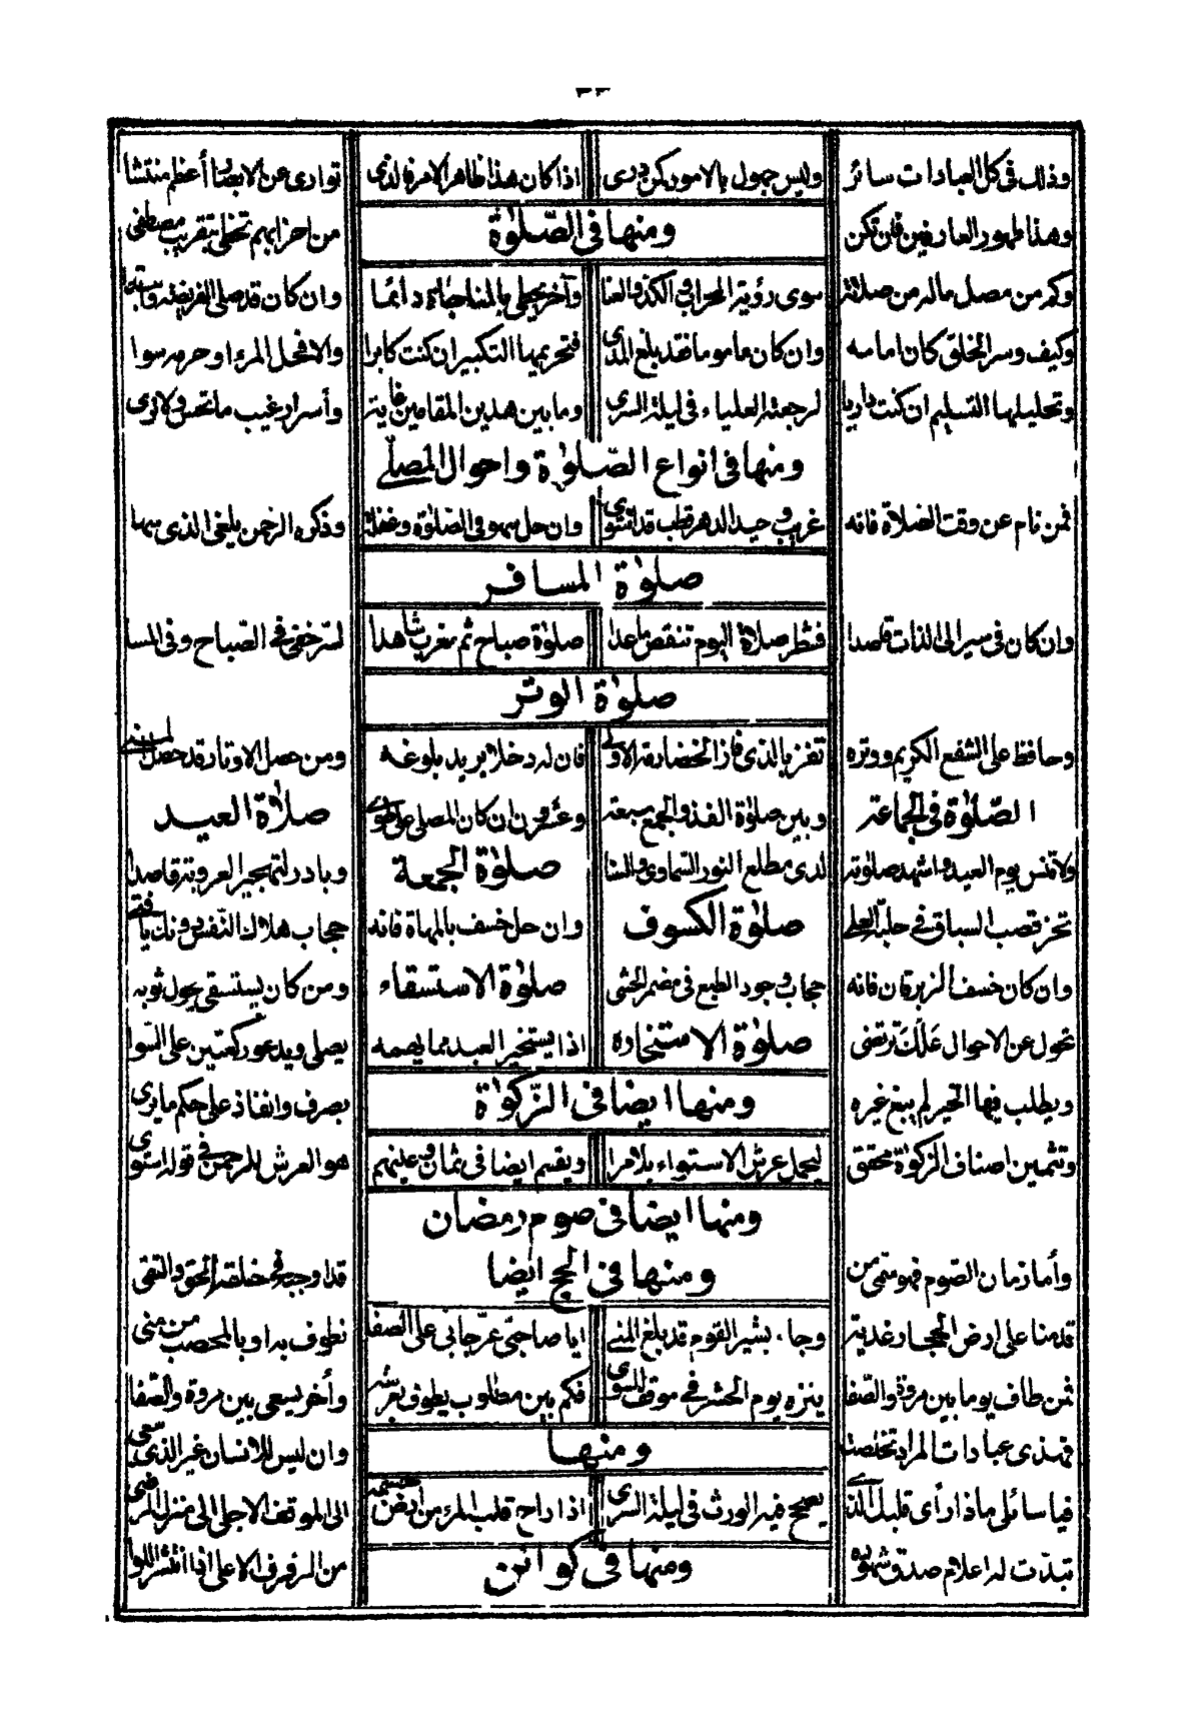 ٣٣
وذلك في كل العبادات سائر وليس جهول بالامور كمن درى اذا كان هذا ظاهر الامر فالذى توارى عن الابصار أعظم منتشا
وهذا ظهور العارفين فان تكن من احزابهم تحظى بتقريب مصطفى
ومنها في الصّلوٰة
وكم من مصل ماله من صلاته سوى رؤية المحراب والكد والعنا وآخر يحظى بالمناجاة دائما وان كان قد صلى الفريضة وابتدا
وكيف وسر الخلق كان امامه وان كان ماموما فقد بلغ المدى فتحريمها التكبير ان كنت كابرا والا فحل المرء او حرمه سوا
وتحليلها التسليم ان كنت داريا لرجعته العلياء في ليلة السرى وما بين هذين المقامين غاية وأسرار غيب ما تحس ولا ترى
ومنها في انواع الصّلوٰة واحوال المصلّي
فمن نام عن وقت الصلاة فانه غريب وحيد الدهر قطب قد استوى وان حل سهو في الصّلوٰة وغفلة وذكره الرحمن يلغى الذى سها
صلوٰة المسافر
وان كان في سير الى الذات قاصدا فشطر صلاة اليوم تنقص ما عدا صلوٰة صباح ثم مغرب شاهدا لسرّ خفى في الصّباح وفى المسا
صلوٰة الوتر
وحافظ على الشفع الكريم ووتره تفز بالذى فاز الحضارمة الاولى فان له دخلا يريد بلوغه ومن حصل الاوتار قد حصل المنى
الصّلوٰة في الجماعة وبين صلوٰة الفذ والجمع سبعة وعشرون ان كان المصلى على طوى صلاة العيد
ولا تنس يوم العيد واشهد صلوته لدى مطلع النور السماوى والسنا صلوٰة الجمعة وبادر لتهجير العروبة قاصدا
تحز قصب السباق في حلبة العلى صلوٰة الكسوف وان حل خسف بالمهاة فانه حجاب هلاك النّفس
وان كان خسف الزبرقان فانه حجاب وجود الطبع في مضمر الحشى صلوٰة الاستسقاء ومن كان يستسقى يحول ثوبه
تحول عن الاحوال عَلّكَ ترتضى صلوٰة الاستخاره اذا يستخير العبد مما يهمه يصلى ويدعو ركعتين على السّوا
ويطلب فيها الخير لم يبغ غيره بصرف وانفاذ على حكم ما يرى
ومنها ايضا في الزّكوٰة
وتثمين اصناف الزكوٰة محقق ليحمل عرش الاستواء بلا مرا ويقسم ايضا في ثمان وعينهم هو العرش للرحمن في قوله استوى
ومنها ايضا في صوم رمضان
وأما زمان الصّوم فهو سمى من قد اوجب في خلقه الحق والتقى
ومنها في الحج ايضا
قدمنا على ارض الحجاز غدية وجاء بشير القوم قد بلغ المنى ايا صاحبىّ عرّجا بى على الصفا نطوف به او بالمحصب من منى
فمن طاف يوما بين مروة والصّفا ينزه يوم الحشر في موقف السوى فكم بين مطلوب يطوف بعرشه وأخر يسعى بين مروة والصّفا
فهذى عبادات المراد تخلصت وان ليس للانسان غير الذى سعى
ومنها
فيا سائلى ماذا رأى قلبك الذى يصح فيه الورث في ليلة السرى اذا راح قلب المرء من أرض جسمه الى الموقف الاجلى الى منزل الرضى
تبدّت له اعلام صدق شهوده من الرفرف الاعلى اذا انتشر اللوا
ومنها في كوائن